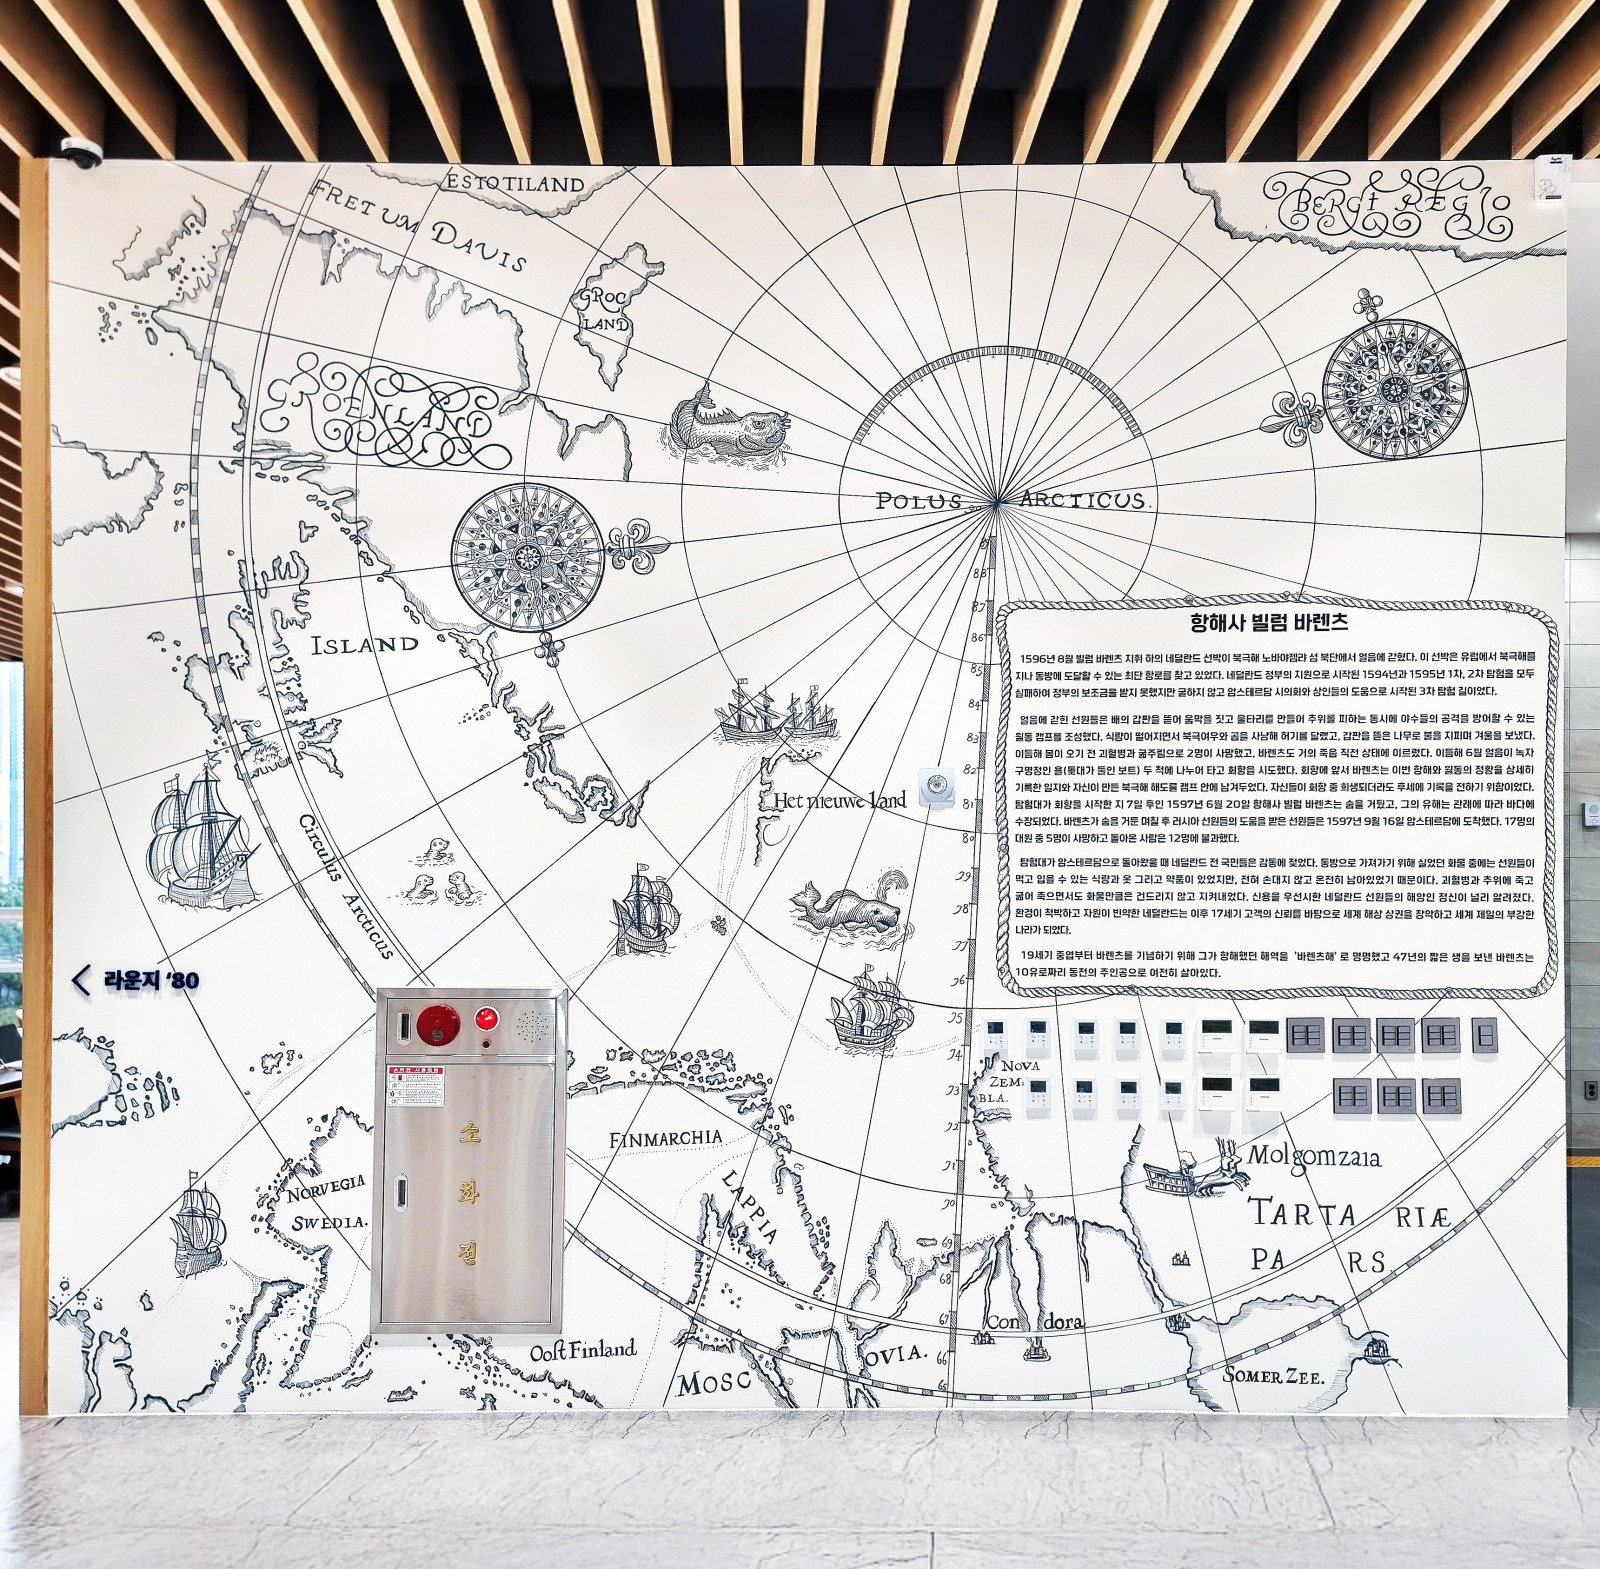 ESTOTILAND
FRETUM DAVIS
BERGI REGIO
GROC
LAND
GROENLAND
POLUS ARCTICUS.
ISLAND
88
87
86
85
84
83
82
81
80
79
78
77
76
75
74
73
72
71
70
69
68
67
66
65
항해사 빌럼 바렌츠
1596년 8월 빌럼 바렌츠 지휘 하의 네덜란드 선박이 북극해 노바야젬랴 섬 북단에서 얼음에 갇혔다. 이 선박은 유럽에서 북극해를
지나 동방에 도달할 수 있는 최단 항로를 찾고 있었다. 네덜란드 정부의 지원으로 시작된 1594년과 1595년 1차, 2차 탐험을 모두
실패하여 정부의 보조금을 받지 못했지만 굴하지 않고 암스테르담 시의회와 상인들의 도움으로 시작된 3차 탐험 길이었다.
얼음에 갇힌 선원들은 배의 갑판을 뜯어 움막을 짓고 울타리를 만들어 추위를 피하는 동시에 야수들의 공격을 방어할 수 있는
월동 캠프를 조성했다. 식량이 떨어지면서 북극여우와 곰을 사냥해 허기를 달랬고, 갑판을 뜯은 나무로 불을 지피며 겨울을 보냈다.
이듬해 봄이 오기 전 괴혈병과 굶주림으로 2명이 사망했고, 바렌츠도 거의 죽음 직전 상태에 이르렀다. 이듬해 6월 얼음이 녹자
구명정인 욜(돛대가 둘인 보트) 두 척에 나누어 타고 회항을 시도했다. 회항에 앞서 바렌츠는 이번 항해와 월동의 정황을 상세히
기록한 일지와 자신이 만든 북극해 해도를 캠프 안에 남겨두었다. 자신들이 회항 중 희생되더라도 후세에 기록을 전하기 위함이었다.
탐험대가 회항을 시작한 지 7일 후인 1597년 6월 20일 항해사 빌럼 바렌츠는 숨을 거뒀고, 그의 유해는 관례에 따라 바다에
수장되었다. 바렌츠가 숨을 거둔 며칠 후 러시아 선원들의 도움을 받은 선원들은 1597년 9월 16일 암스테르담에 도착했다. 17명의
대원 중 5명이 사망하고 돌아온 사람은 12명에 불과했다.
탐험대가 암스테르담으로 돌아왔을 때 네덜란드 전 국민들은 감동에 젖었다. 동방으로 가져가기 위해 실었던 화물 중에는 선원들이
먹고 입을 수 있는 식량과 옷 그리고 약품이 있었지만, 전혀 손대지 않고 온전히 남아있었기 때문이다. 괴혈병과 추위에 죽고
굶어 죽으면서도 화물만큼은 건드리지 않고 지켜내었다. 신용을 우선시한 네덜란드 선원들의 해양인 정신이 널리 알려졌다.
환경이 척박하고 자원이 빈약한 네덜란드는 이후 17세기 고객의 신뢰를 바탕으로 세계 해상 상권을 장악하고 세계 제일의 부강한
나라가 되었다.
19세기 중엽부터 바렌츠를 기념하기 위해 그가 항해했던 해역을 '바렌츠해' 로 명명했고 47년의 짧은 생을 보낸 바렌츠는
10유로짜리 동전의 주인공으로 여전히 살아있다.
Het nieuwe land
Circulus Arcticus
라운지 '80
소
화
전
NOVA
ZEM:
BLA.
FINMARCHIA
LAPPIA
NORVEGIA
SWEDIA.
Molgomzaia
TARTA RIÆ
PA RS.
Con dora
Oost Finland
MOSC OVIA.
SOMER ZEE.